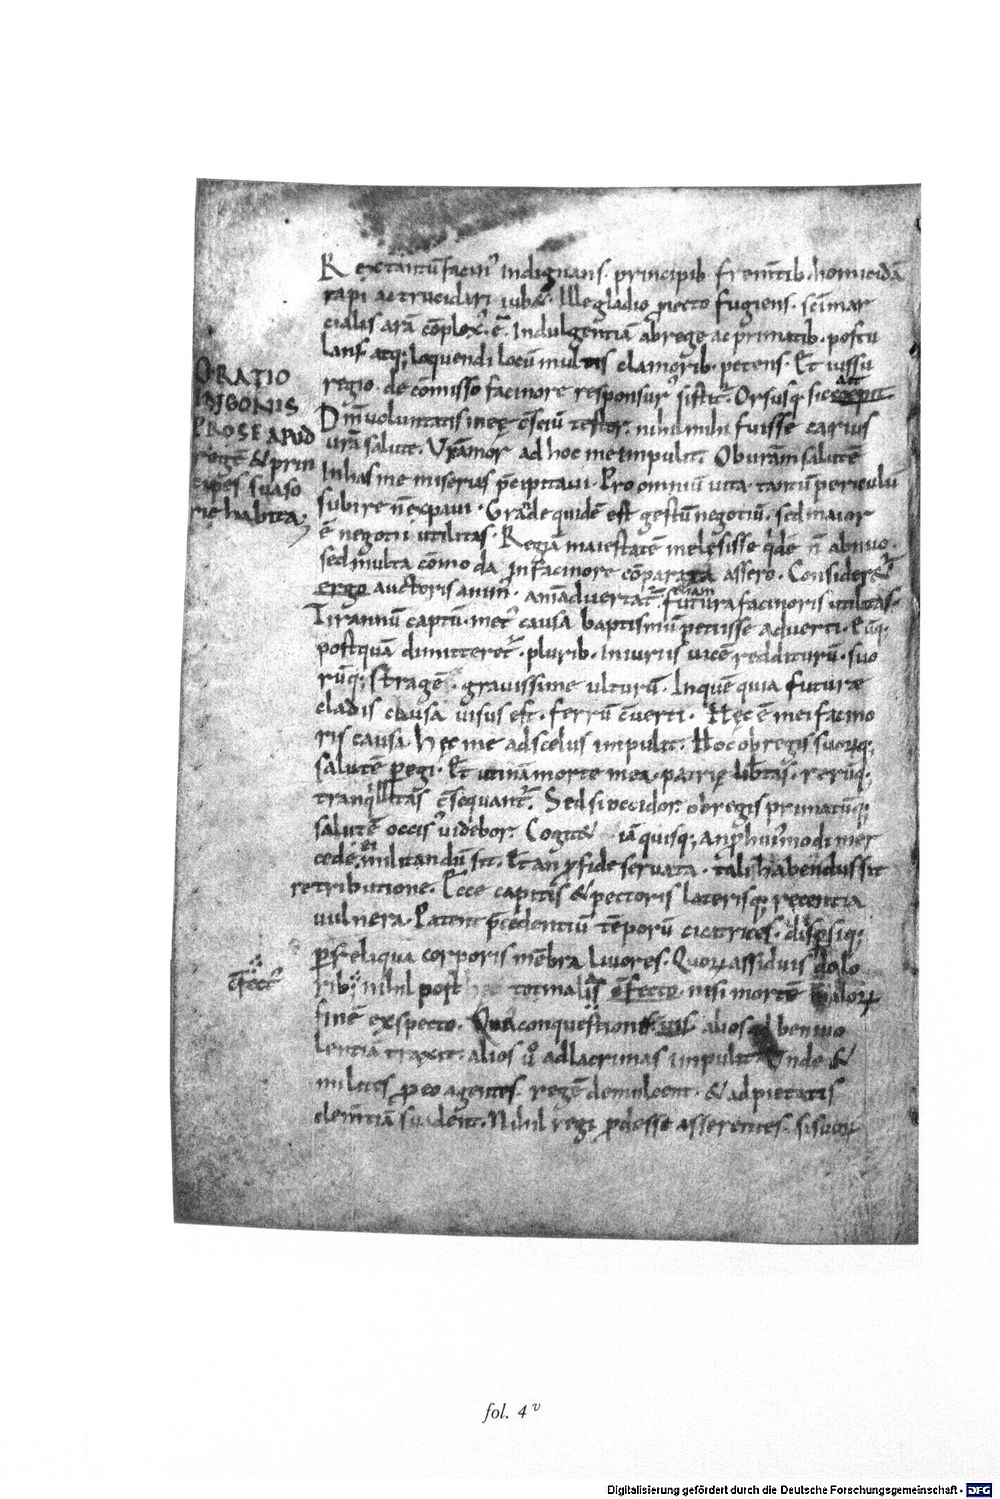 ORATIO
INGONIS
PROSE APUD
regē & prin
cipes suaso
rie habita;
Rex tantū facin᷒ indignans. principib; frem̄tib. homicidā
rapi ac trucidari iub&. Ille gladio piecto fugiens. sc̄i mar
cialis arā cōplex᷒. ē. Indulgentiā ab rege ac primatib. postu
lans. atq; loquendi locū multis clamorib. petens. Et iussu
regio. de cōmisso facinore responsur᷒ sistit᷒. Orsusq; sic coepit
ait
Dm̄ voluntatis meę c̄sciū testor. nihil mihi fuisse carius
vr̄a salute. Vr̄ amor ad hoc me impulit. Ob vr̄am salutē
In has me miserias p̄cipitavi. Pro omniū vita. tantū periculū
subire n̄ expavi. Grande quidē est gestū negotiū. sed maior
ē negotii utilitas. Regiā maiestatē me lęsisse qidē n̄ abnuo.
sed multa cōmoda In facinore cōparata assero. Consider&ur
ergo auctoris anim᷒. Animadvertat᷒ etiam futura facinoris utilitas.
Tirannū captū. met᷒ causa baptismū petiisse adverti. Eūq;
postquā dimitteret᷒. plurib. iniuriis vicē redditurū. suo
rūq; stragē. gravissime ulturū. In quē quia futurę
cladis causa visus est. ferrū c̄verti. Hęc ē mei facino
ris causa. Hęc me ad scelus impulit. Hoc ob regis suorūq;
salutē pegi. Et utinā morte mea. patrię lib̄tas. rerūq;
tranqillitas c̄sequant᷒. Sed si occidor. ob regis primatūq;
salutē occis᷒ videbor. Cogit& iā quisq; an p huiusmodi mer
cede ei militandū sit. Et an p fide servata. tali habendus sit
retributione. Ecce capitis & pectoris laterisq; recentia
vulnera. Patent p̄cedentiū tēporū cicatrices. disp̄siq;
p reliqua corporis mēbra livores. Quorū assiduis dolo
c̄fect᷒
rib; nihil post hęc tot malis c̄fecto. nisi mortē malorū
finē exspecto. Qua conquestione. alios ad benivo
lentiā traxit. alios v̊ ad lacrimas impulit. Unde &
milites p eo agentes. regē demulcent. & ad pietatis
clem̄tiā suadent. Nihil regi pdesse asserentes. si suorū
fol. 4v
Digitalisierung gefördert durch die Deutsche Forschungsgemeinschaft - DFG